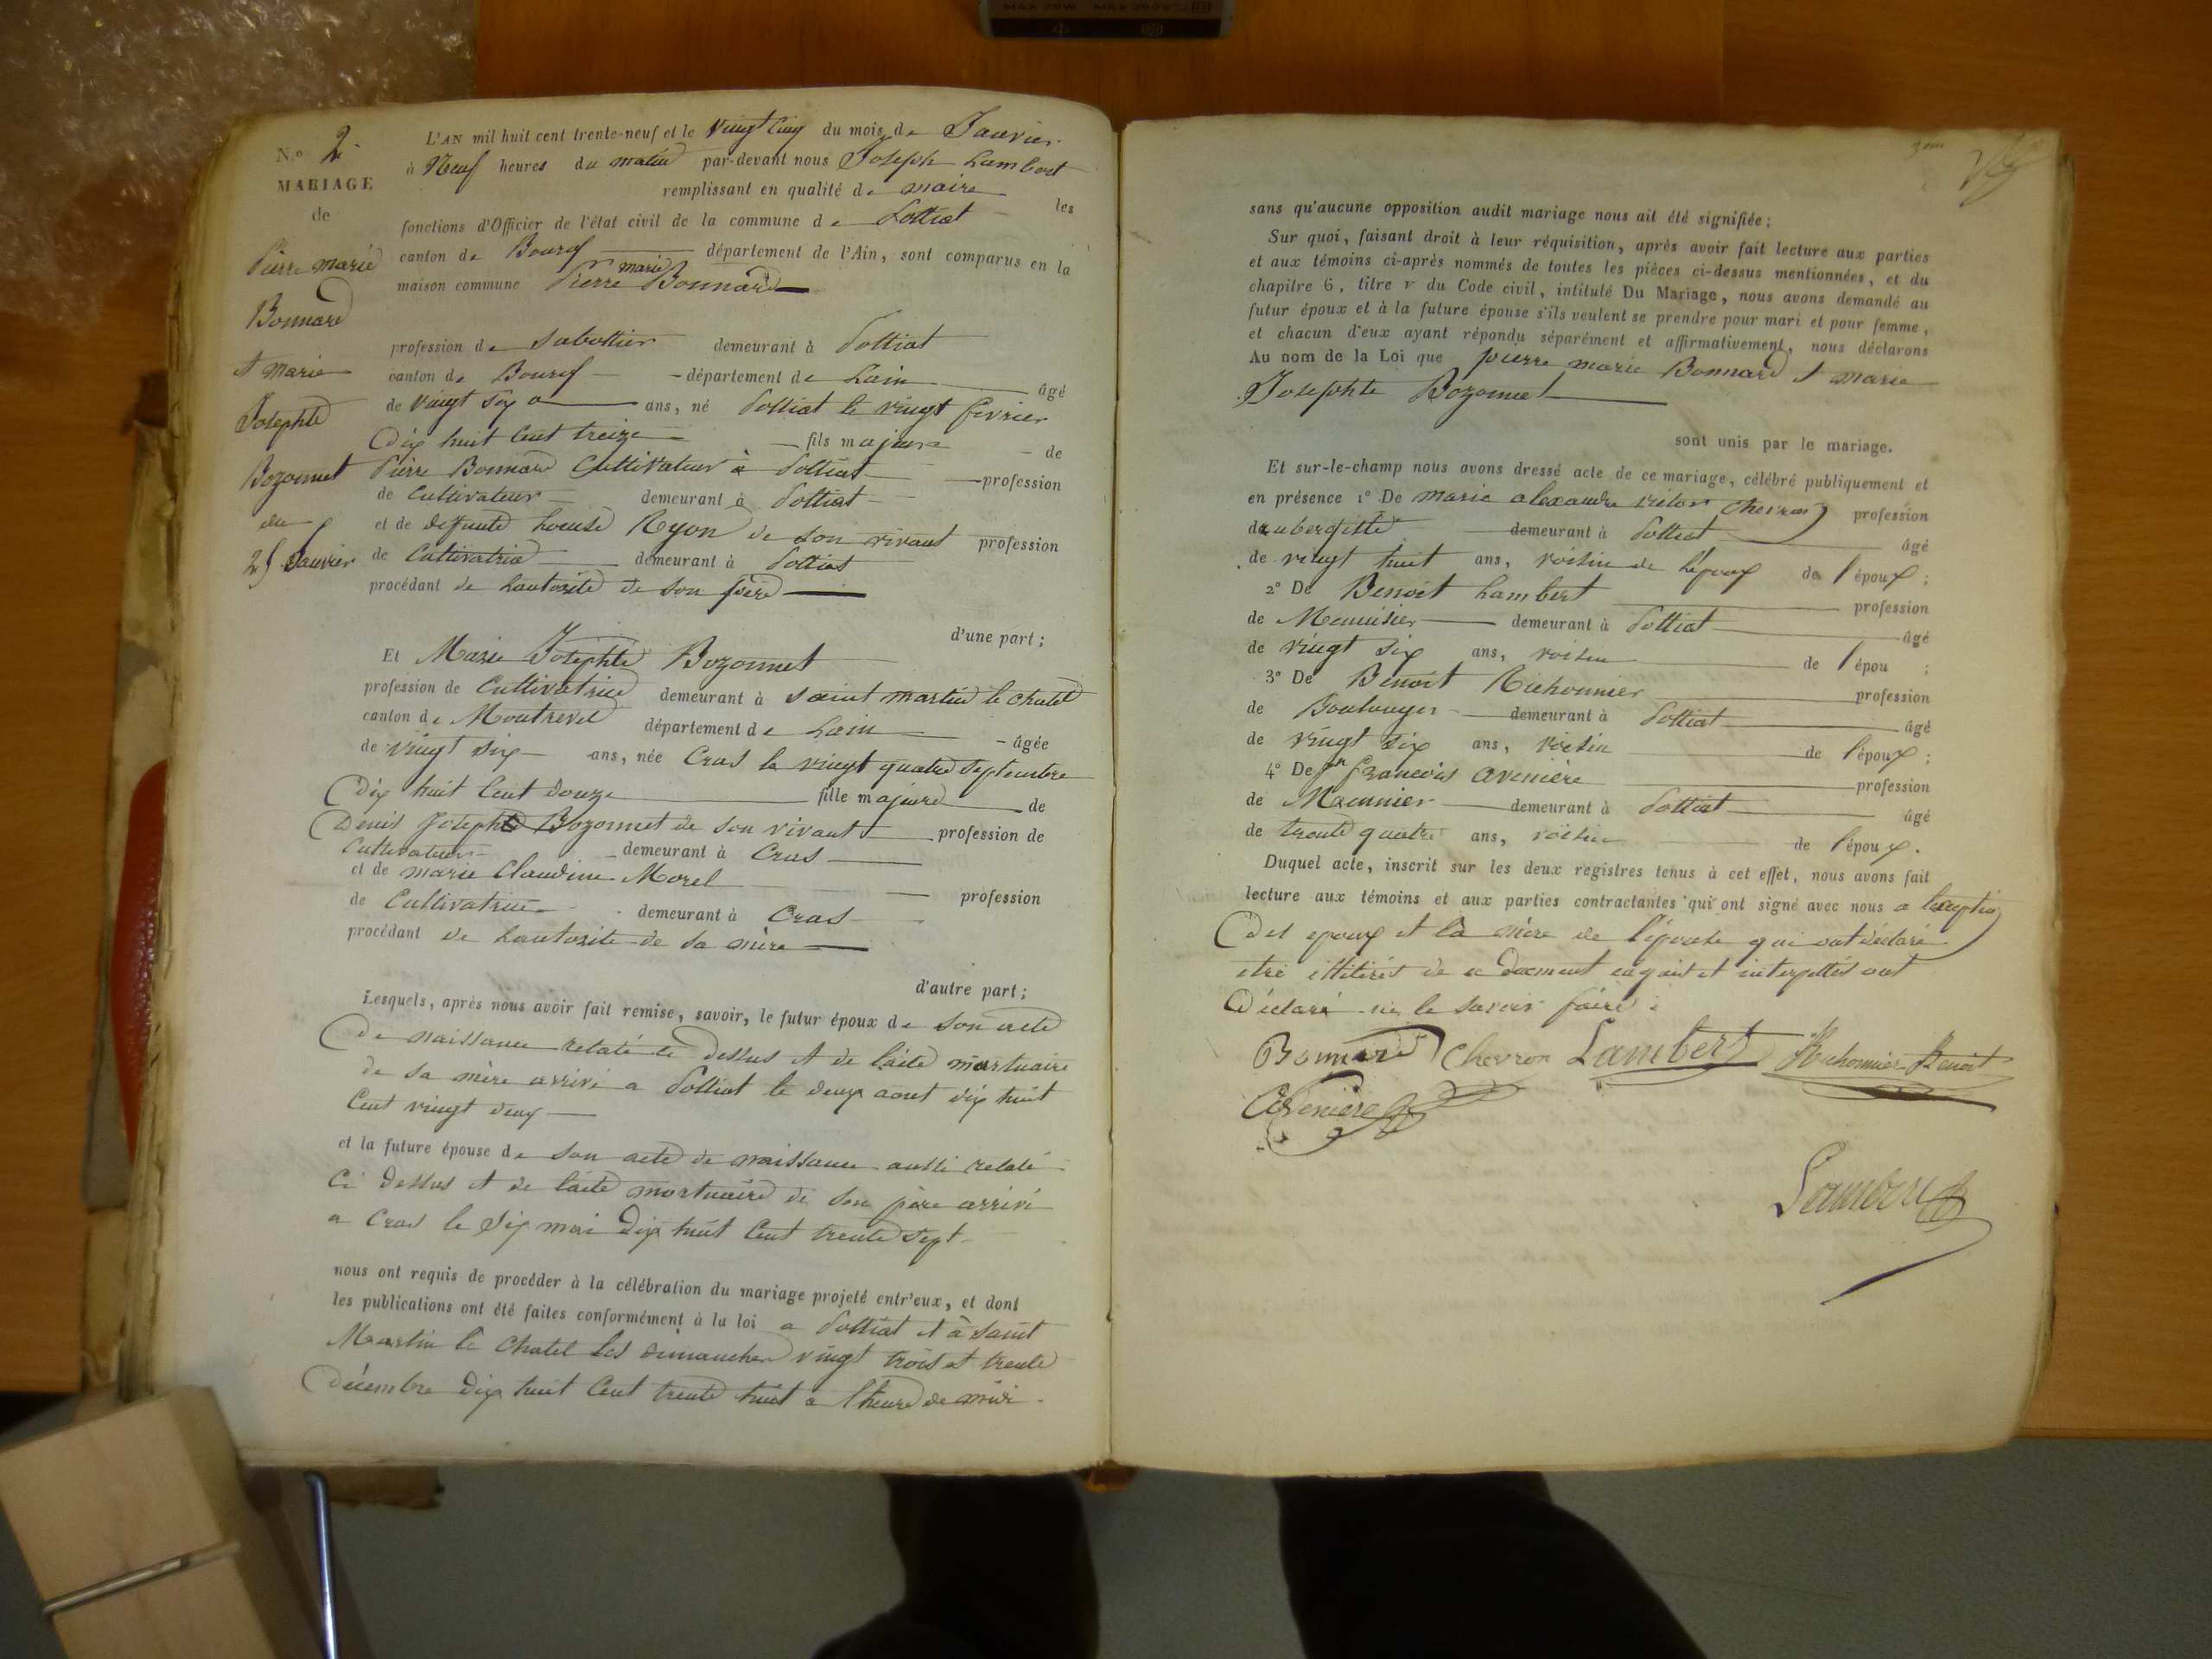 N.o 2.
MARIAGE
de
Pierre marie
Bonnard
et Marie
Josephte
Bozonnet
du
25 Janvier
L'AN mil huit cent trente-neuf et le vingt cinq du mois de Janvier
à Neuf heures du matin par-devant nous Joseph Lambert
remplissant en qualité de maire les
fonctions d'Officier de l'état civil de la commune de Polliat
canton de Bourg département de l'Ain, sont comparus en la
maison commune Pierre marie Bonnard
profession de sabottier demeurant à Polliat
canton de Bourg département de Lain âgé
de vingt six ans, né Polliat le vingt fevrier
dix huit cent treize fils majeur de
Pierre Bonnard Cultivateur à Polliat profession
de Cultivateur demeurant à Polliat
et de deffunte Louise Ryon de son vivant profession
de Cultivatrice demeurant à Polliat
procédant de Lautorité de son père
d'une part;
Et Marie Josephte Bozonnet
profession de Cultivatrice demeurant à saint martin le chatel
canton de Montrevel département de Lain âgée
de vingt six ans, née Cras le vingt quatre septembre
Dix huit Cent douze fille majeure de
Denis Joseph Bozonnet de son vivant profession de
Cultivateur demeurant à Cras
et de marie Claudine Morel profession
de Cultivatrice demeurant à Cras
procédant de Lautorité de sa mère
d'autre part;
Lesquels, après nous avoir fait remise, savoir, le futur époux de son acte
De naissance relaté ci Dessus et de l'acte mortuaire
de sa mère arrivé a Polliat le deux aout dix huit
Cent vingt deux
et la future épouse de son acte de naissance aussi relaté
Ci Dessus et de l'acte mortuaire de son père arrivé
a Cras le six mai Dix huit Cent trente sept
nous ont requis de procéder à la célébration du mariage projeté entr'eux, et dont
les publications ont été faites conformément à la loi a Polliat et à saint
Martin le Chatel les dimanches vingt trois et trente
Décembre Dix huit Cent trente huit a l'heure de midi.
sans qu'aucune opposition audit mariage nous ait été signifiée;
Sur quoi, faisant droit à leur réquisition, après avoir fait lecture aux parties
et aux témoins ci-après nommés de toutes les pièces ci-dessus mentionnées, et du
chapitre 6, titre v du Code civil, intitulé Du Mariage, nous avons demandé au
futur époux et à la future épouse s'ils veulent se prendre pour mari et pour femme,
et chacun d'eux ayant répondu séparément et affirmativement, nous déclarons
Au nom de la Loi que pierre marie Bonnard et marie
Josephte Bozonnet
sont unis par le mariage.
Et sur-le-champ nous avons dressé acte de ce mariage, célébré publiquement et
en présence 1° De marie alexandre victor chevron profession
daubergiste demeurant à Polliat âgé
de vingt huit ans, voisin de l'époux de l'époux;
2° De Benoit Lambert profession
de Menuisier demeurant à Polliat âgé
de vingt six ans, voisin de l'épou;
3° De Benoit Richonnier profession
de Boulanger demeurant à Polliat âgé
de vingt six ans, voisin de l'époux;
4° De francois avenière profession
de Meunier demeurant à Polliat âgé
de trente quatre ans, voisin de l'époux.
Duquel acte, inscrit sur les deux registres tenus à cet effet, nous avons fait
lecture aux témoins et aux parties contractantes qui ont signé avec nous a lexeption
Des epoux et la mère de l'épouse qui ont déclaré
etre illitirés de ce Document enquis et interpellés ont
Déclaré ne le savoir faire.
Bonnard Chevron Lambert Richonnier Benoit
Avenière
Lambert